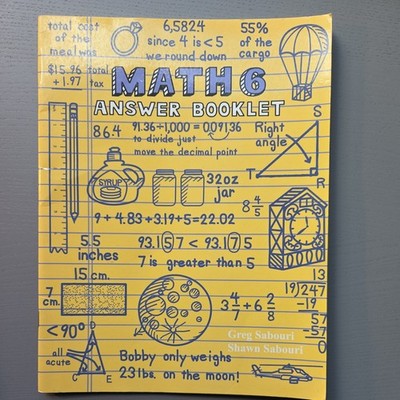 total cost
of the
meal was
$15.96 total
+1.97 tax
6,582.4
since 4 is < 5
we round down
55%
of the
cargo
MATH 6
ANSWER BOOKLET
864
91.36÷1,000 = 0.09136
to divide just
move the decimal point
Right
angle
S
T
R
SYRUP
32oz
jar
8 4/5
9 + 4.83+3.19+5=22.02
5.5
inches
93.157 < 93.175
7 is greater than 5
15 cm.
7
cm.
3 4/7 + 6 2/8
13
19)247
-19
57
-57
0
<90°
all
acute
D
C
E
Bobby only weighs
23 lbs. on the moon!
Greg Sabouri
Shawn Sabouri